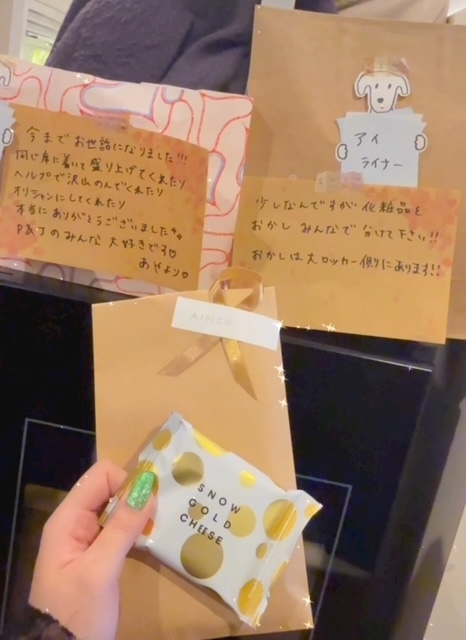 今までお世話になりました!!!
同じ席に着いて盛り上げてくれたり
ヘルプで沢山のんでくれたり
オリシャンにしてくれたり
本当にありがとうございました
P&Jのみんな 大好きです♡
あやより♡
アイ
ライナー
少しなんですが 化粧品を
おかし みんなで 分けて下さい!!
おかしは大ロッカー側にあります!!
SNOW
GOLD
CHEESE